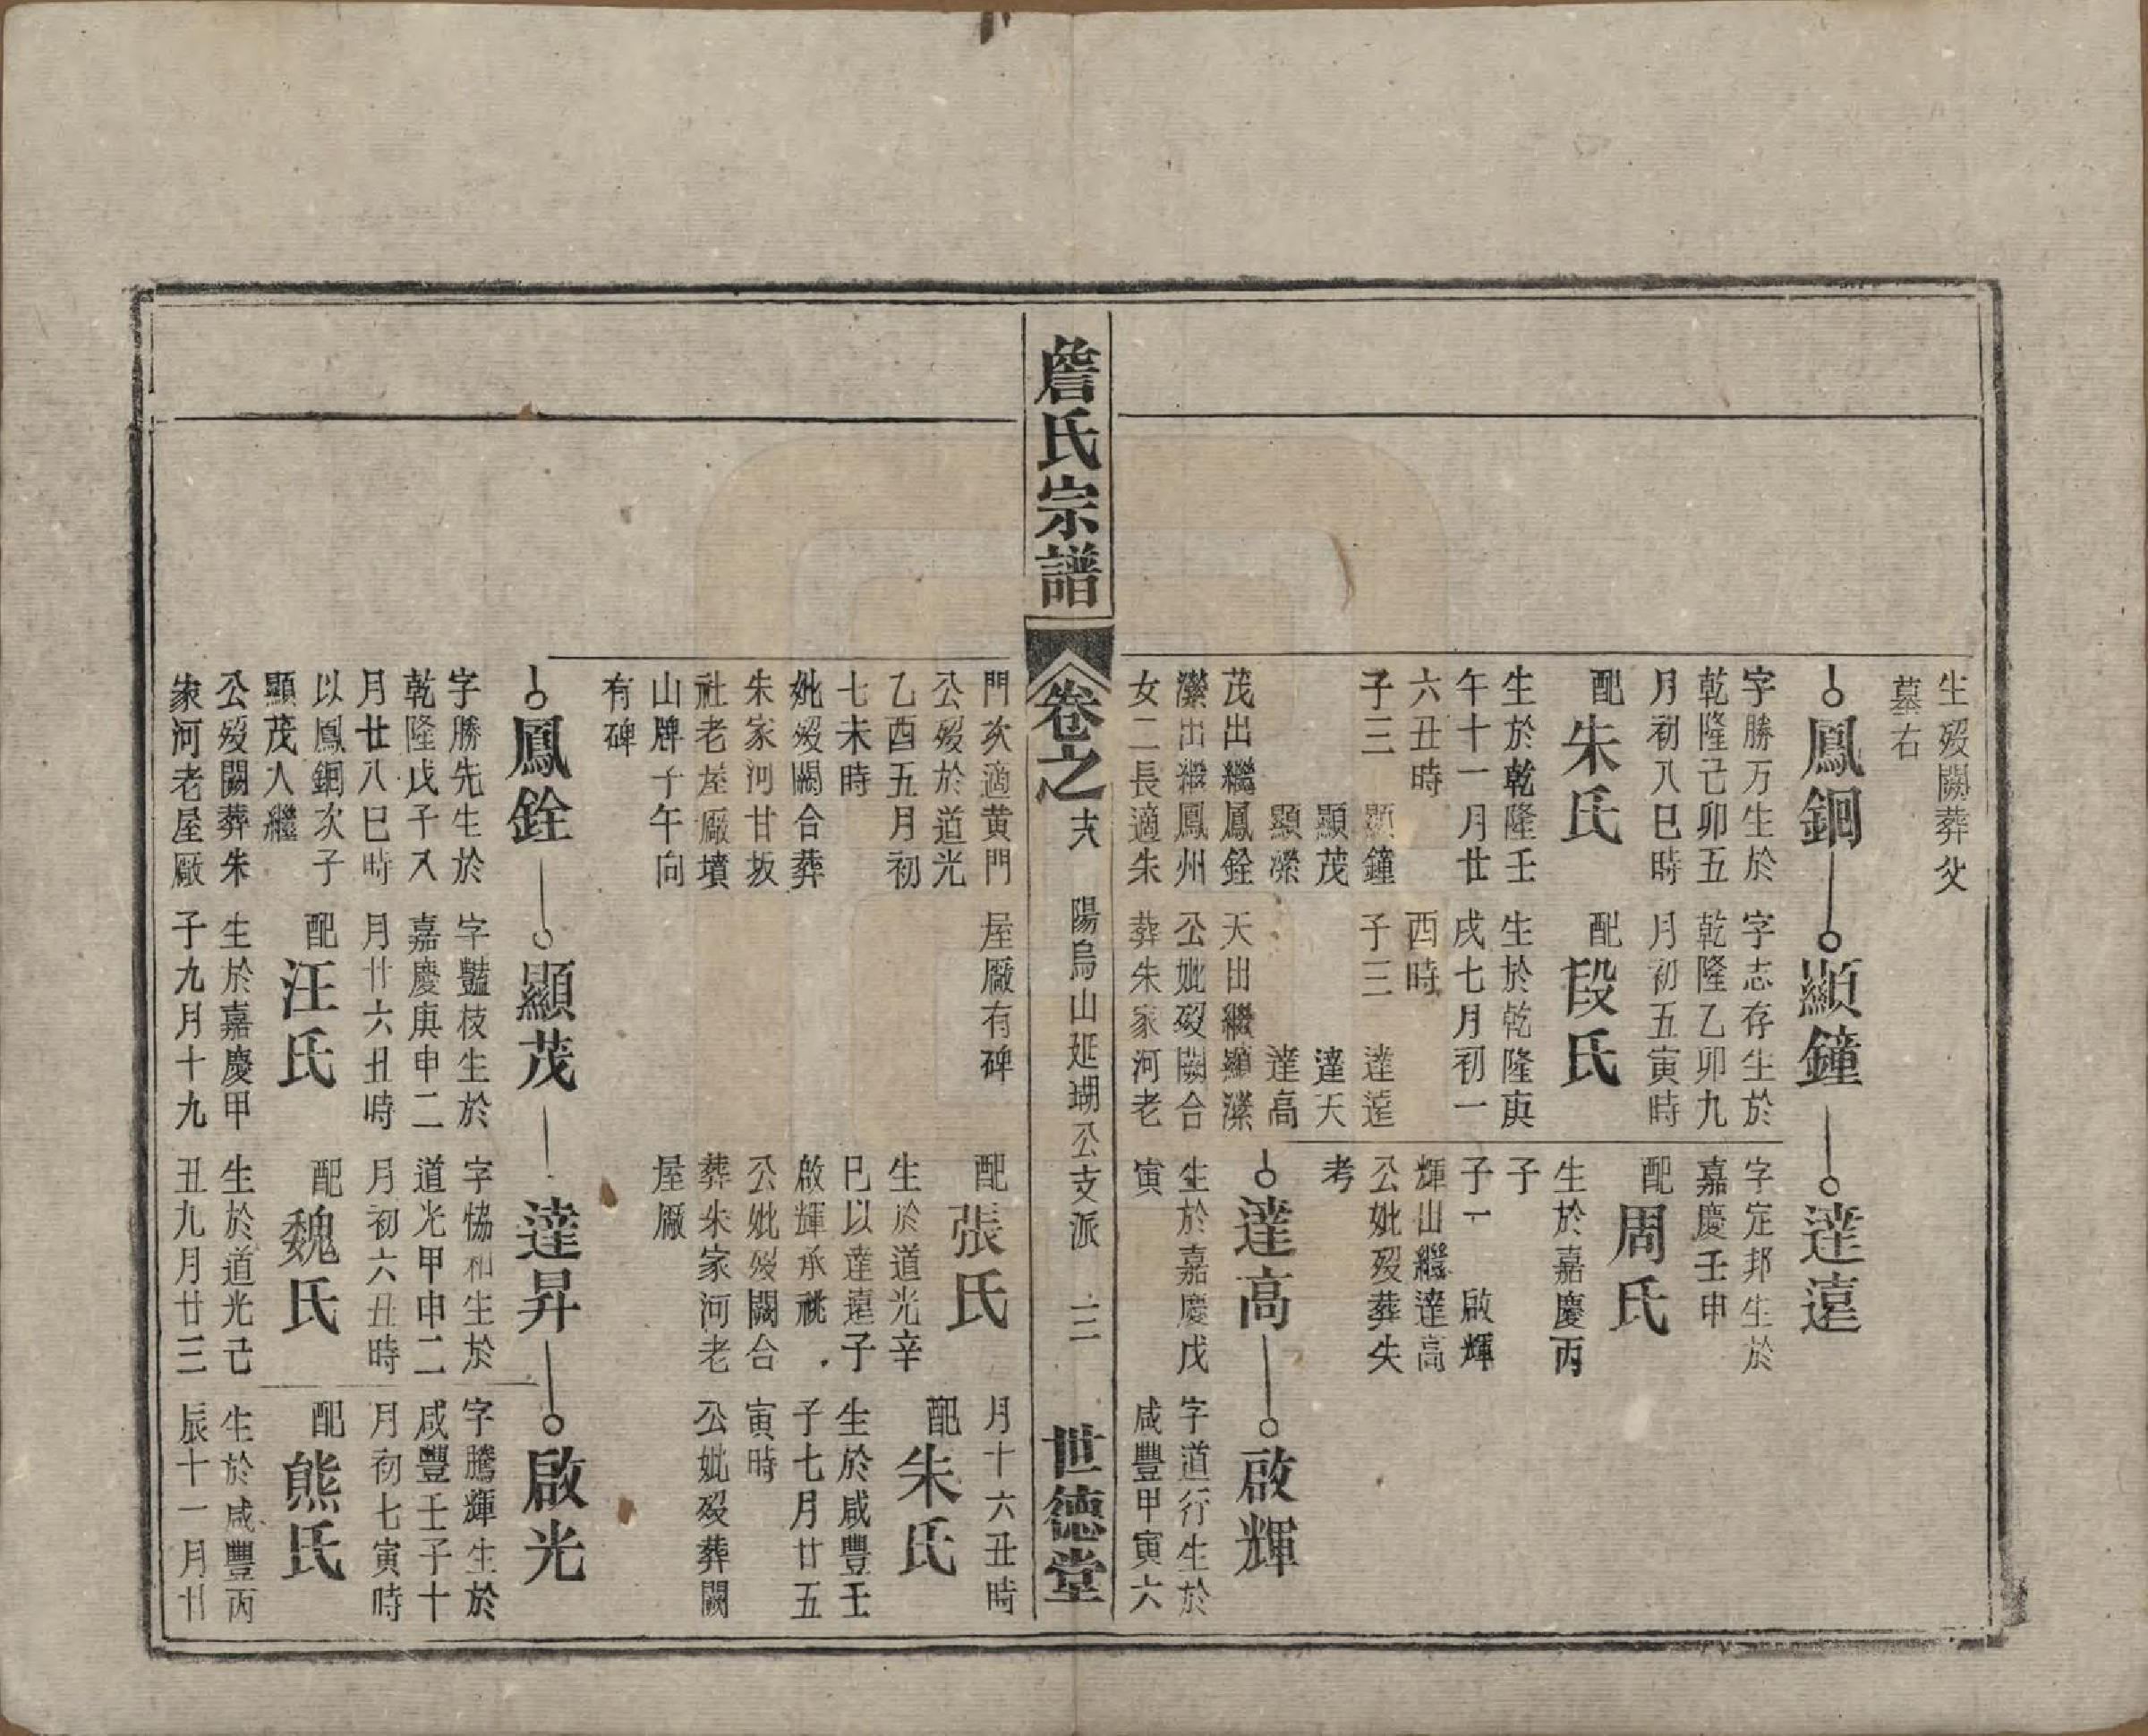 生歿闕葬父
墓右
鳳錮
字勝万生於
乾隆己卯五
月初八巳時
配朱氏
生於乾隆壬
午十一月廿
六丑時
子三 顯鐘
顯茂
顯濚
茂出繼鳳銓
濚出繼鳳州
女二長適朱
顯鐘
字志存生於
乾隆乙卯九
月初五寅時
配段氏
生於乾隆庚
戌七月初一
酉時
子三 達遠
達天
達高
天出繼顯濚
公妣歿闕合
葬朱家河老
達遠
字定邦生於
嘉慶壬申
配周氏
生於嘉慶丙
子
子一 啟輝
輝山繼達高
公妣歿葬失
考
達高
生於嘉慶戊
寅
啟輝
字道行生於
咸豐甲寅六
詹氏宗譜
卷之
陽烏山延瑚公支派
三
世德堂
門次適黄門
公歿於道光
乙酉五月初
七未時
妣歿闕合葬
朱家河甘坂
社老屋廠墳
山牌子午向
有碑
屋廠有碑
配張氏
生於道光辛
巳以達遠子
啟輝承祧
公妣歿闕合
葬朱家河老
屋廠
月十六丑時
配朱氏
生於咸豐壬
子七月廿五
寅時
公妣歿葬闕
鳳銓
字勝先生於
乾隆戊子八
月廿八巳時
以鳳錮次子
顯茂入繼
公歿闕葬朱
家河老屋廠
顯茂
字豔枝生於
嘉慶庚申二
月廿六丑時
配汪氏
生於嘉慶甲
子九月十九
達昇
字恊和生於
道光甲申二
月初六丑時
配魏氏
生於道光己
丑九月廿三
啟光
字騰輝生於
咸豐壬子十
月初七寅時
配熊氏
生於咸豐丙
辰十一月廿